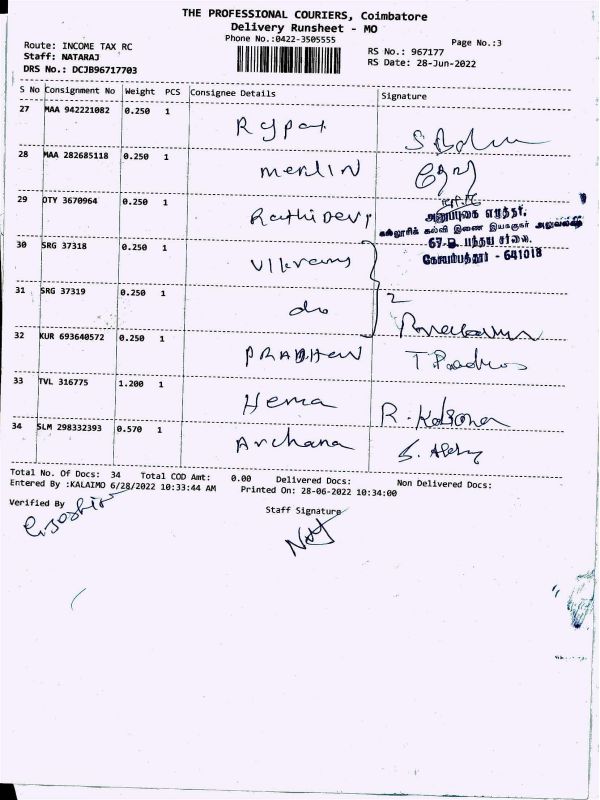 THE PROFESSIONAL COURIERS, Coimbatore
Delivery Runsheet - MO
Phone No.:0422-3505555
Page No.:3
Route: INCOME TAX RC
Staff: NATARAJ
RS No.: 967177
DRS No.: DCJB96717703
RS Date: 28-Jun-2022
S No Consignment No Weight PCS Consignee Details Signature
27 MAA 942221082 0.250 1
28 MAA 282685118 0.250 1 merlin
29 OTY 3670964 0.250 1 Rathi Devi
அனுப்புகை எழுத்தர்,
கல்லூரிக் கல்வி இணை இயக்குநர் அலுவலகம்
30 SRG 37318 0.250 1 Vikrams
67-D, பந்தய சாலை,
கோயம்புத்தூர் - 641018
31 SRG 37319 0.250 1 do 2
32 KUR 693640572 0.250 1
33 TVL 316775 1.200 1 Hema
34 SLM 298332393 0.570 1 Archana
Total No. Of Docs: 34 Total COD Amt: 0.00 Delivered Docs: Non Delivered Docs:
Entered By :KALAIMO 6/28/2022 10:33:44 AM Printed On: 28-06-2022 10:34:00
Verified By
Staff Signature